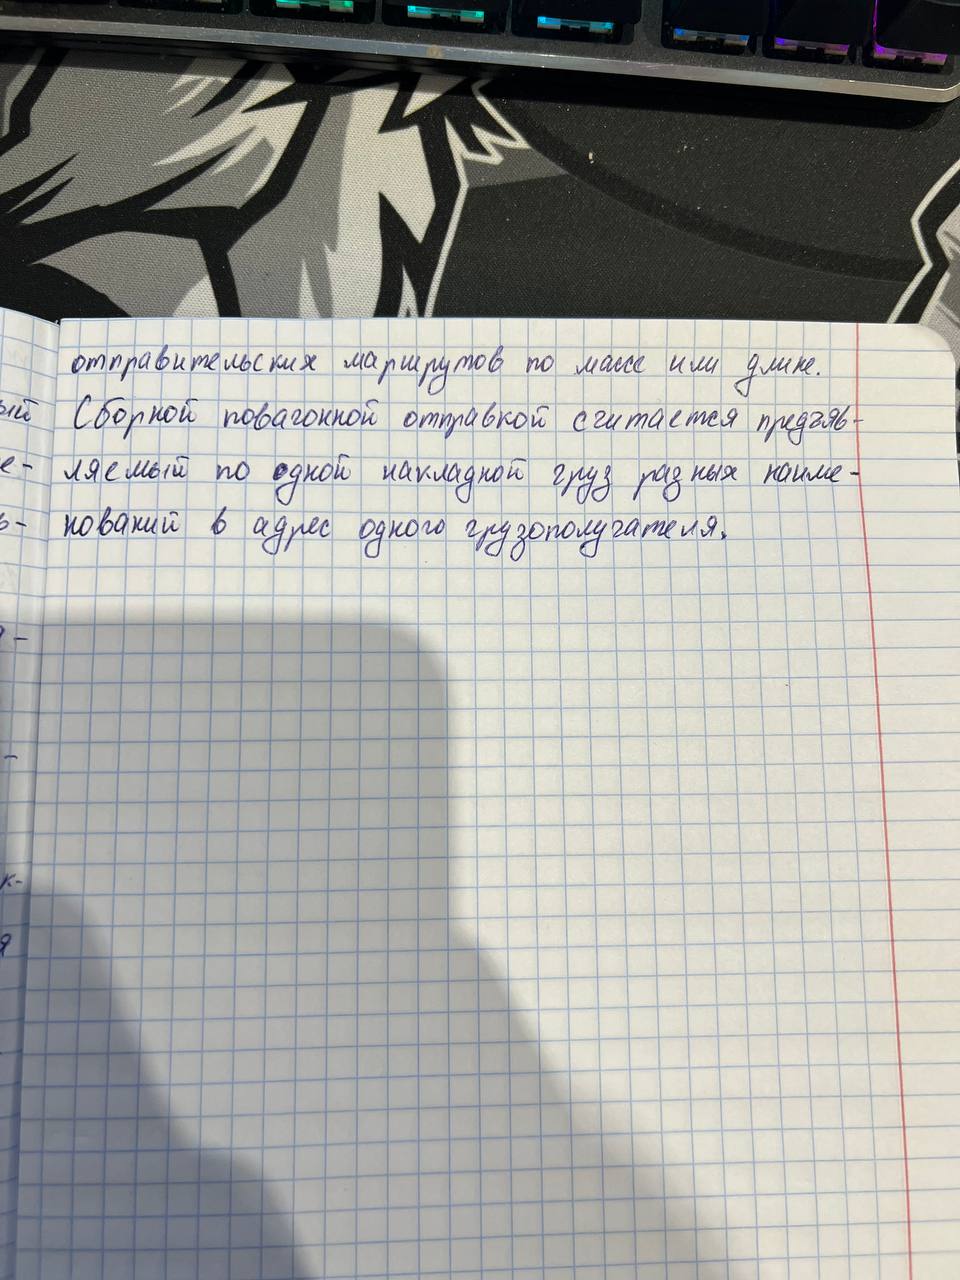 отправительских маршрутов по массе или длине.
Сборной повагонной отправкой считается предъяв-
ляемый по одной накладной груз разных наиме-
нований в адрес одного грузополучателя.